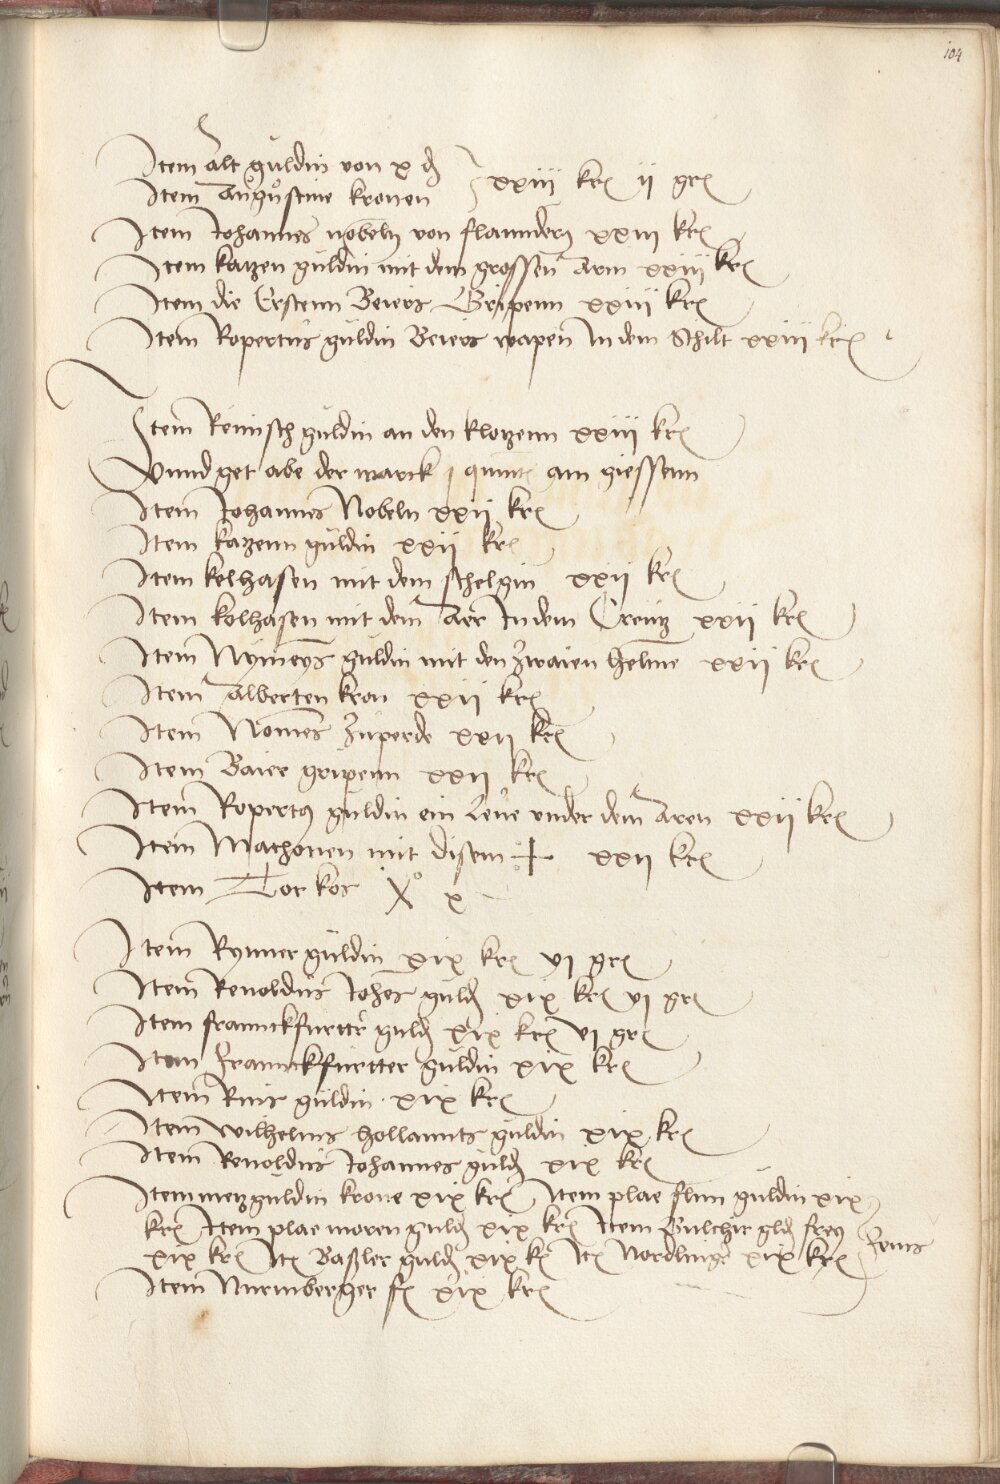 104
Item Alt guldin von x ₰
Item Augustine kronen } xxiii kr ii gr
Item Johannes nobeln von flaundern xxiii kr
Item katzen guldin mit dem grossen Arm xxiii kr
Item die Ersten Beiers Gripenn xxiii kr
Item Ropertus guldin Beiers wapen In dem Schilt xxiii kr
Item Reinisch guldin an den klotzenn xxiii kr
Vnnd get abe der marck j quint am giessenn
Item Johannes Nobeln xxii kr
Item katzenn guldin xxii kr
Item kolhasen mit dem schelgin xxii kr
Item kolhasen mit dem Aer In dem Creutz xxii kr
Item Nymeys guldin mit den zwaien helme xxii kr
Item Alberten kron xxii kr
Item Nomes zuperde xxii kr
Item Baier gripenn xxii kr
Item Ropertus guldin ein Lewe vnder dem Aren xxii kr
Item Mathonen mit disem + xxii kr
Item Torkos X x
Item Rynner guldin xix kr vj gr
Item Renoldus Johes guld xix kr vj gr
Item franckfurtter guld xix kr vj gr
Item Franckfurtter guldin xix kr
Item Rins guldin xix kr
Item wilhelms hollannts guldin xix kr
Item Renoldus Johannes guld xix kr
Item metz guldin krone xix kr Item plae flun guldin xix
kr Item plae moren guld xix kr Item Bulchir gld frey
xix kr Itē Baßler guld xix kr Itē Nordlinge xix kr
Item Nurmberger fl xix kr